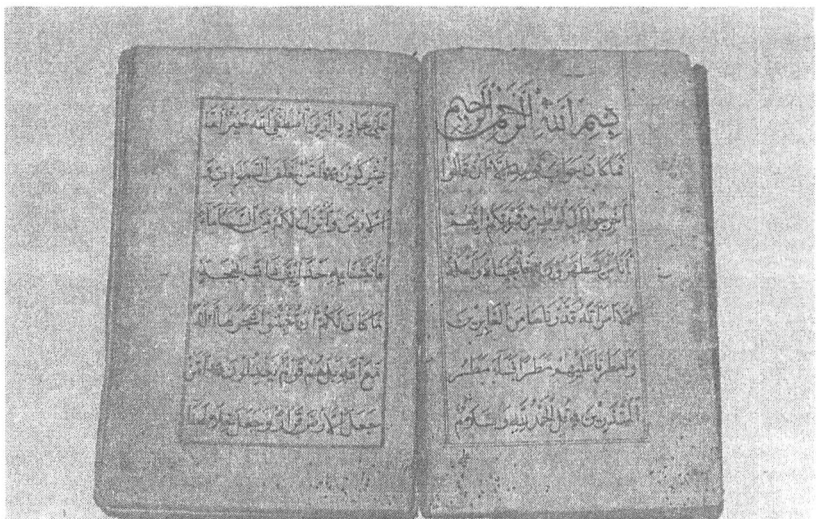 بِسْمِ اللّٰهِ الرَّحْمٰنِ الرَّحِيمِ
فَمَا كَانَ جَوَابَ قَوْمِهِ إِلَّا أَنْ قَالُوا
أَخْرِجُوا آلَ لُوطٍ مِنْ قَرْيَتِكُمْ إِنَّهُمْ
أُنَاسٌ يَتَطَهَّرُونَ فَأَنْجَيْنَاهُ وَأَهْلَهُ
إِلَّا امْرَأَتَهُ قَدَّرْنَاهَا مِنَ الْغَابِرِينَ
وَأَمْطَرْنَا عَلَيْهِمْ مَطَرًا فَسَاءَ مَطَرُ
الْمُنْذَرِينَ قُلِ الْحَمْدُ لِلّٰهِ وَسَلَامٌ
عَلَى عِبَادِهِ الَّذِينَ اصْطَفَى آللّٰهُ خَيْرٌ أَمَّا
يُشْرِكُونَ أَمَّنْ خَلَقَ السَّمٰوَاتِ وَ
الْأَرْضَ وَأَنْزَلَ لَكُمْ مِنَ السَّمَاءِ مَاءً
فَأَنْبَتْنَا بِهِ حَدَائِقَ ذَاتَ بَهْجَةٍ
مَا كَانَ لَكُمْ أَنْ تُنْبِتُوا شَجَرَهَا أَإِلٰهٌ
مَعَ اللّٰهِ بَلْ هُمْ قَوْمٌ يَعْدِلُونَ أَمَّنْ
جَعَلَ الْأَرْضَ قَرَارًا وَجَعَلَ خِلَالَهَا